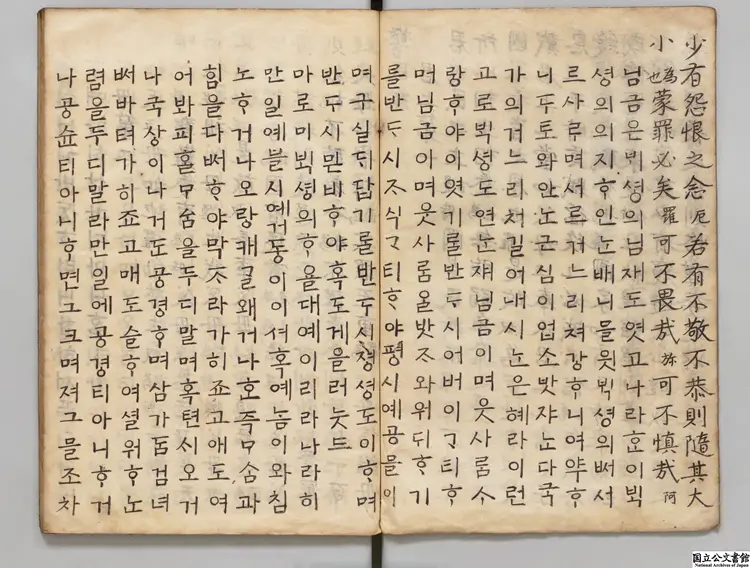 少有怨恨之念厄若有不敬不恭則隨其大
小為也蒙罪必矣羅可不畏哉㫆可不慎哉阿
님금은뵉셩의님재도엿고나라흔이뵉
셩의의지ᄒᆞ인눈배니믈읫뵉셩의뻐서
르사ᄅᆞ며서르거느리쳐강ᄒᆞ니여약ᄒᆞ
니두토와안눈근심이업소밧쟈눈다국
가의거느리처길어내시눈은혜라이런
고로뵉셩도연눈쟤님금이며웃사롬ᄉᆞ
랑ᄒᆞ야이엿기롤반ᄃᆞ시어버이ᄀᆞ티ᄒᆞ
머님금아며웃사롬올밧ᄌᆞ와위ᄃᆡᄒᆞ기
를반ᄃᆞ시ᄌᆞ식ᄀᆞ티ᄒᆞ야평시예공믈이
며구실ᄃᆡ답기롤반ᄃᆞ시졍셩도이ᄒᆞ며
반ᄃᆞ시민비ᄒᆞ야혹도게을러늣드
마로미뵉셩의ᄒᆞ올대예이리라나라히
만일예블시예거동이이셔혹예놈이와침
노ᄒᆞ거나오랑캐글왜거나ᄒᆞᆫ즉ᄆᆞᄉᆞᆷ과
힘을다뻐ᄒᆞ야막ᄌᆞ라가히죠고애도여
어봐피홀ᄆᆞᄉᆞᆷ을두디말며혹텬시오거
나국상이나거도공경ᄒᆞ며삼가돔검녀
뻐바텨가히죠고매도슬ᄒᆞ여셜위ᄒᆞ노
렴을두디말라만일에공경티아니ᄒᆞ거
나공슌티아니ᄒᆞ면그크며져그믈조차
国立公文書館
National Archives of Japan